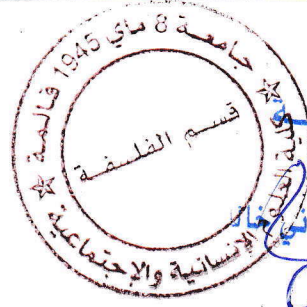 جامعة 8 ماي 1945 قالمة
كلية العلوم الإنسانية والإجتماعية
قسم الفلسفة